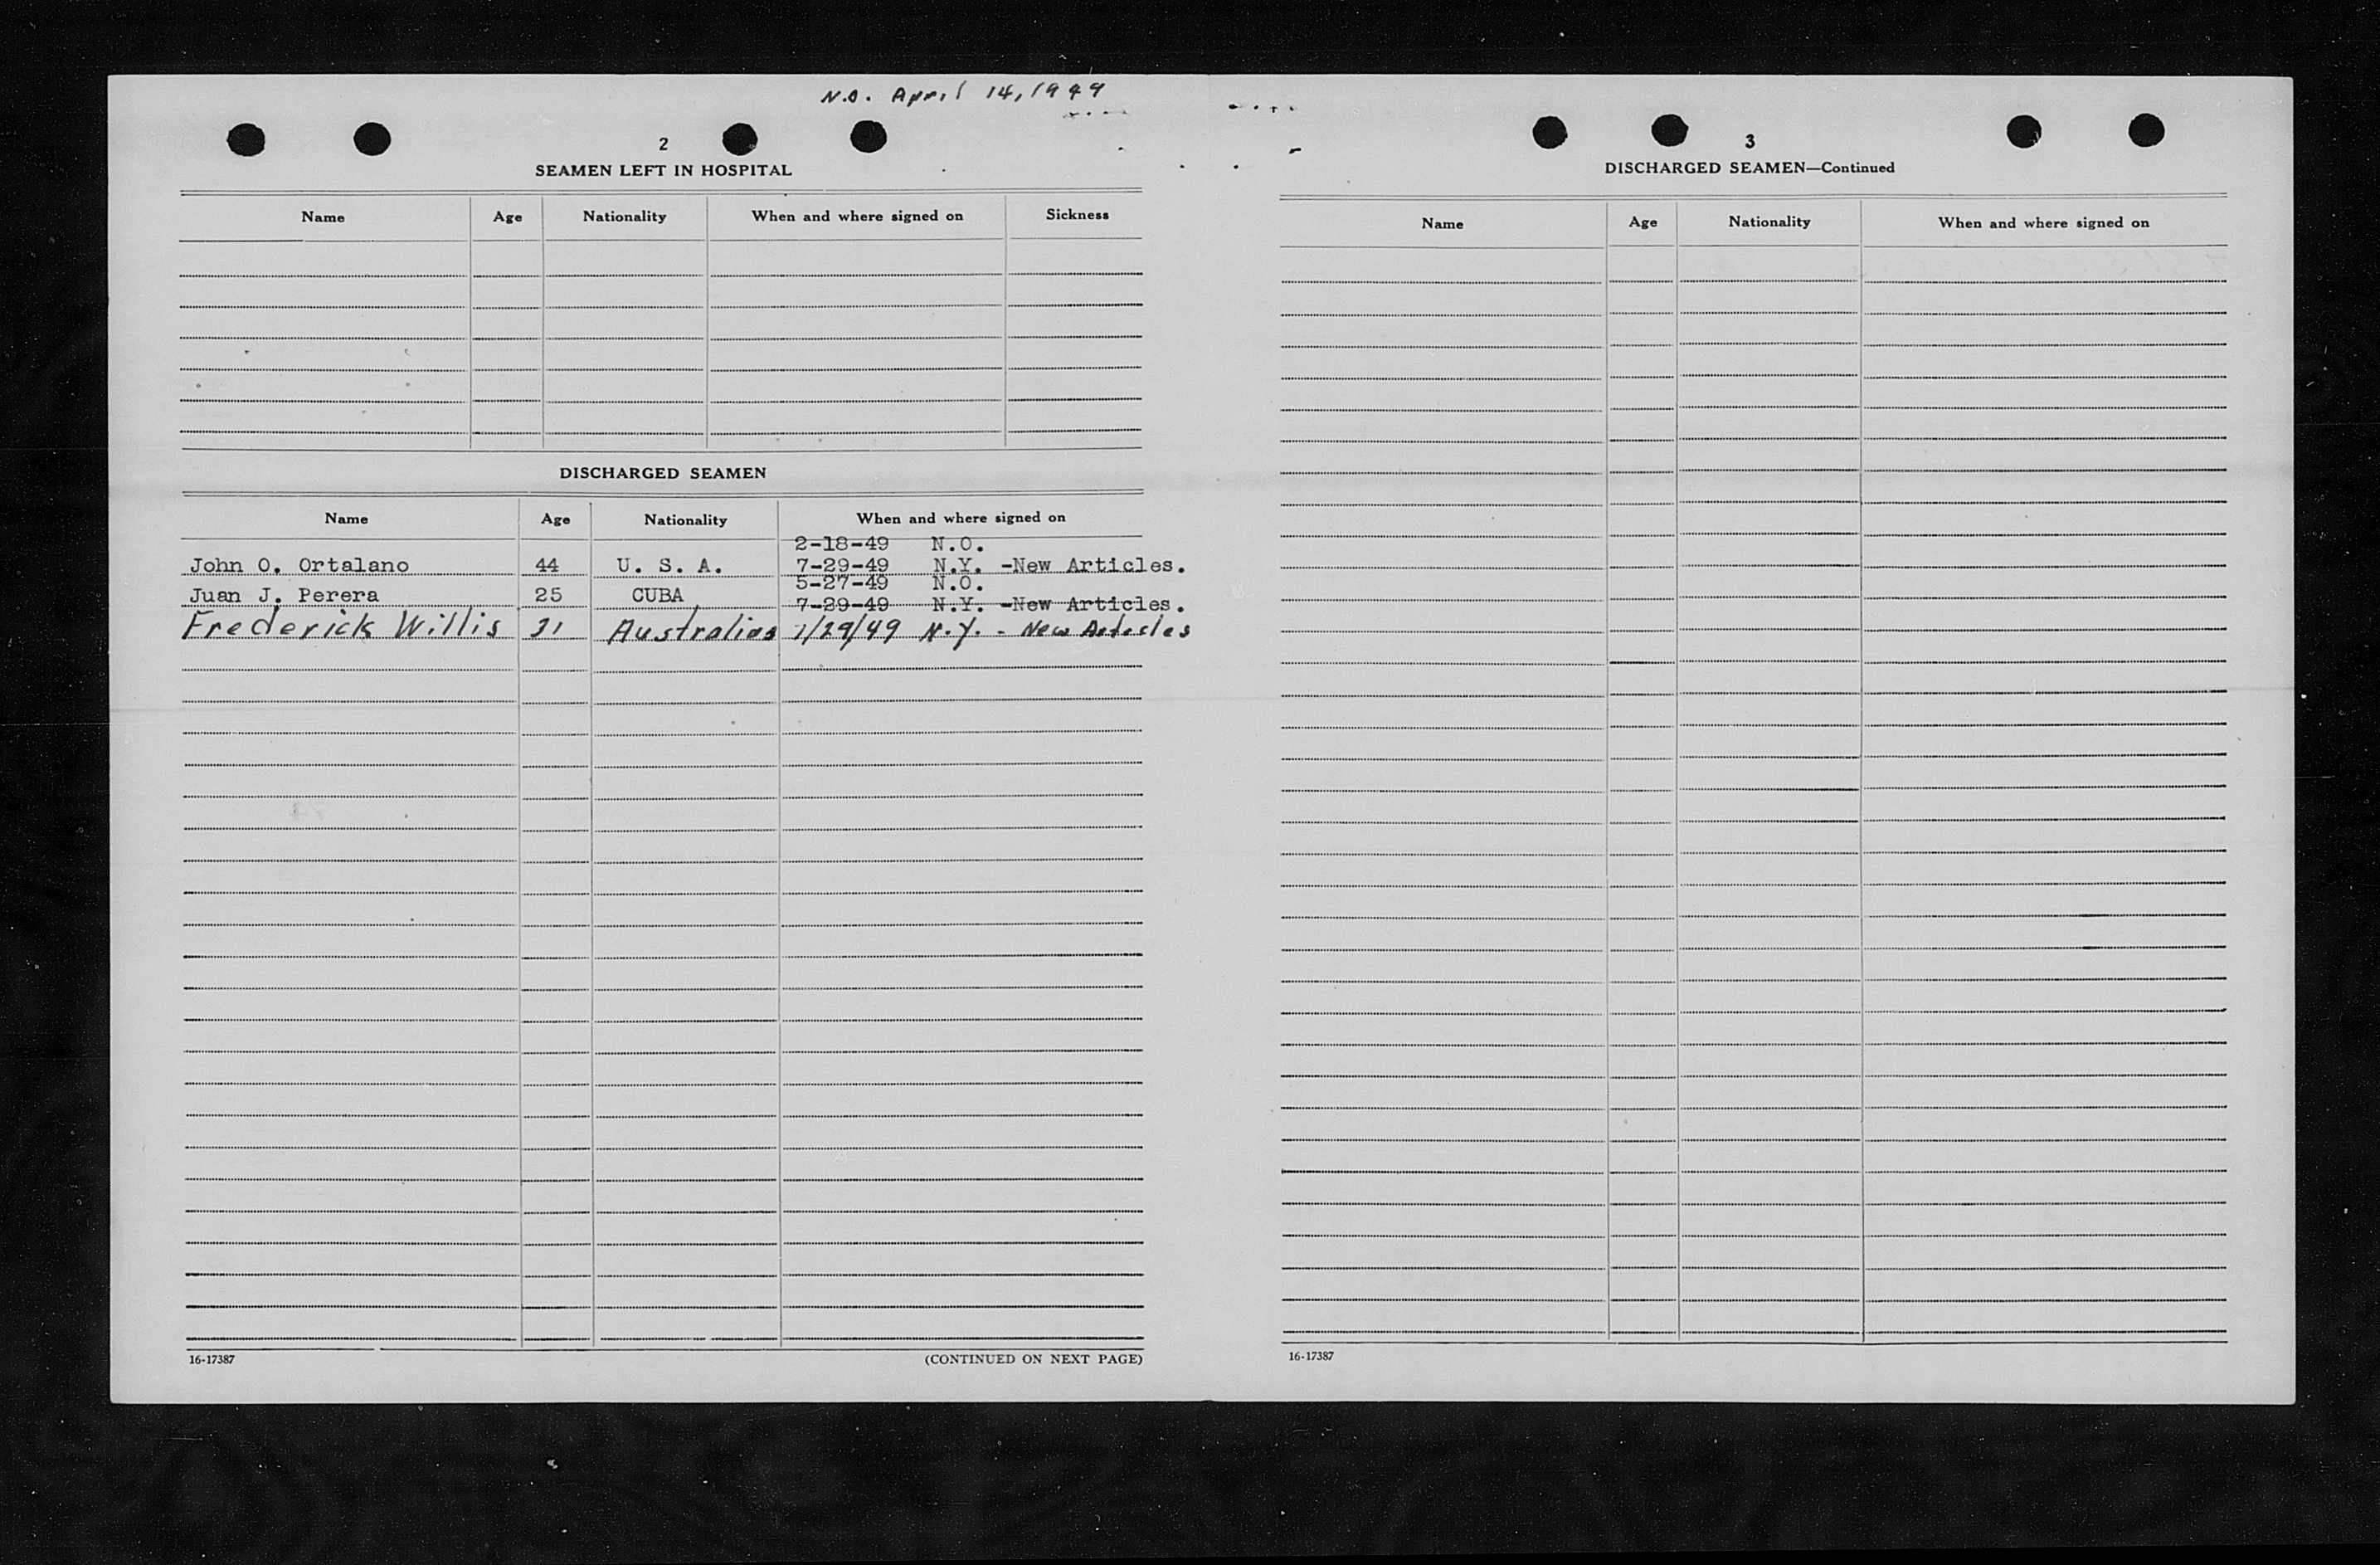 N.O. April 14, 1949
2
SEAMEN LEFT IN HOSPITAL
Name Age Nationality When and where signed on Sickness
DISCHARGED SEAMEN
Name Age Nationality When and where signed on
2-18-49 N.O.
John O. Ortalano 44 U. S. A. 7-29-49 N.Y. -New Articles.
5-27-49 N.O.
Juan J. Perera 25 CUBA
7-29-49 N.Y. -New Articles.
Frederick Willis 31 Australian 7/29/49 N.Y. - New Articles
16-17387 (CONTINUED ON NEXT PAGE)
3
DISCHARGED SEAMEN—Continued
Name Age Nationality When and where signed on
16-17387